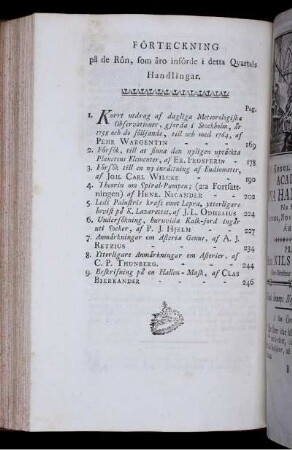 FÖRTECKNING
på de Rön, som äro införde i detta Qvartals
Handlingar.
Pag.
1. Kort utdrag af dagliga Meteorologiska
Observationer, gjorda i Stockholm, år
och de följande, till och med 1784, af
PEHR WARGENTIN - - - 169
2. Försök, till at finna den nyligen uptäckta
Planetens Elementer, af ER. PROSPERIN - 178
3. Försök till en ny inrättning af Eudiometer,
af JOH. CARL WILCKE - - 190
4. Theorin om Spiral-Pumpen; (2:a Fortsätt-
ningen) af HENR. NICANDER - - 208
5. Ledi Palustris kraft emot Lepra, ytterligare
bevist på K. Lazarettet, af J. L. ODHELIUS 224
6. Undersökning, huruvida Kalk-jord ingår
uti Socker, af P. J. HJELM - - 227
7. Anmärkningar om Asteriæ Genus, af A. J.
RETZIUS - - - 234
8. Ytterligare Anmärkningar om Asterier, af
C. P. THUNBERG. - - 244
9. Beskrifning på en Hallon-Mask, af CLAS
BJERKANDER - - - 246